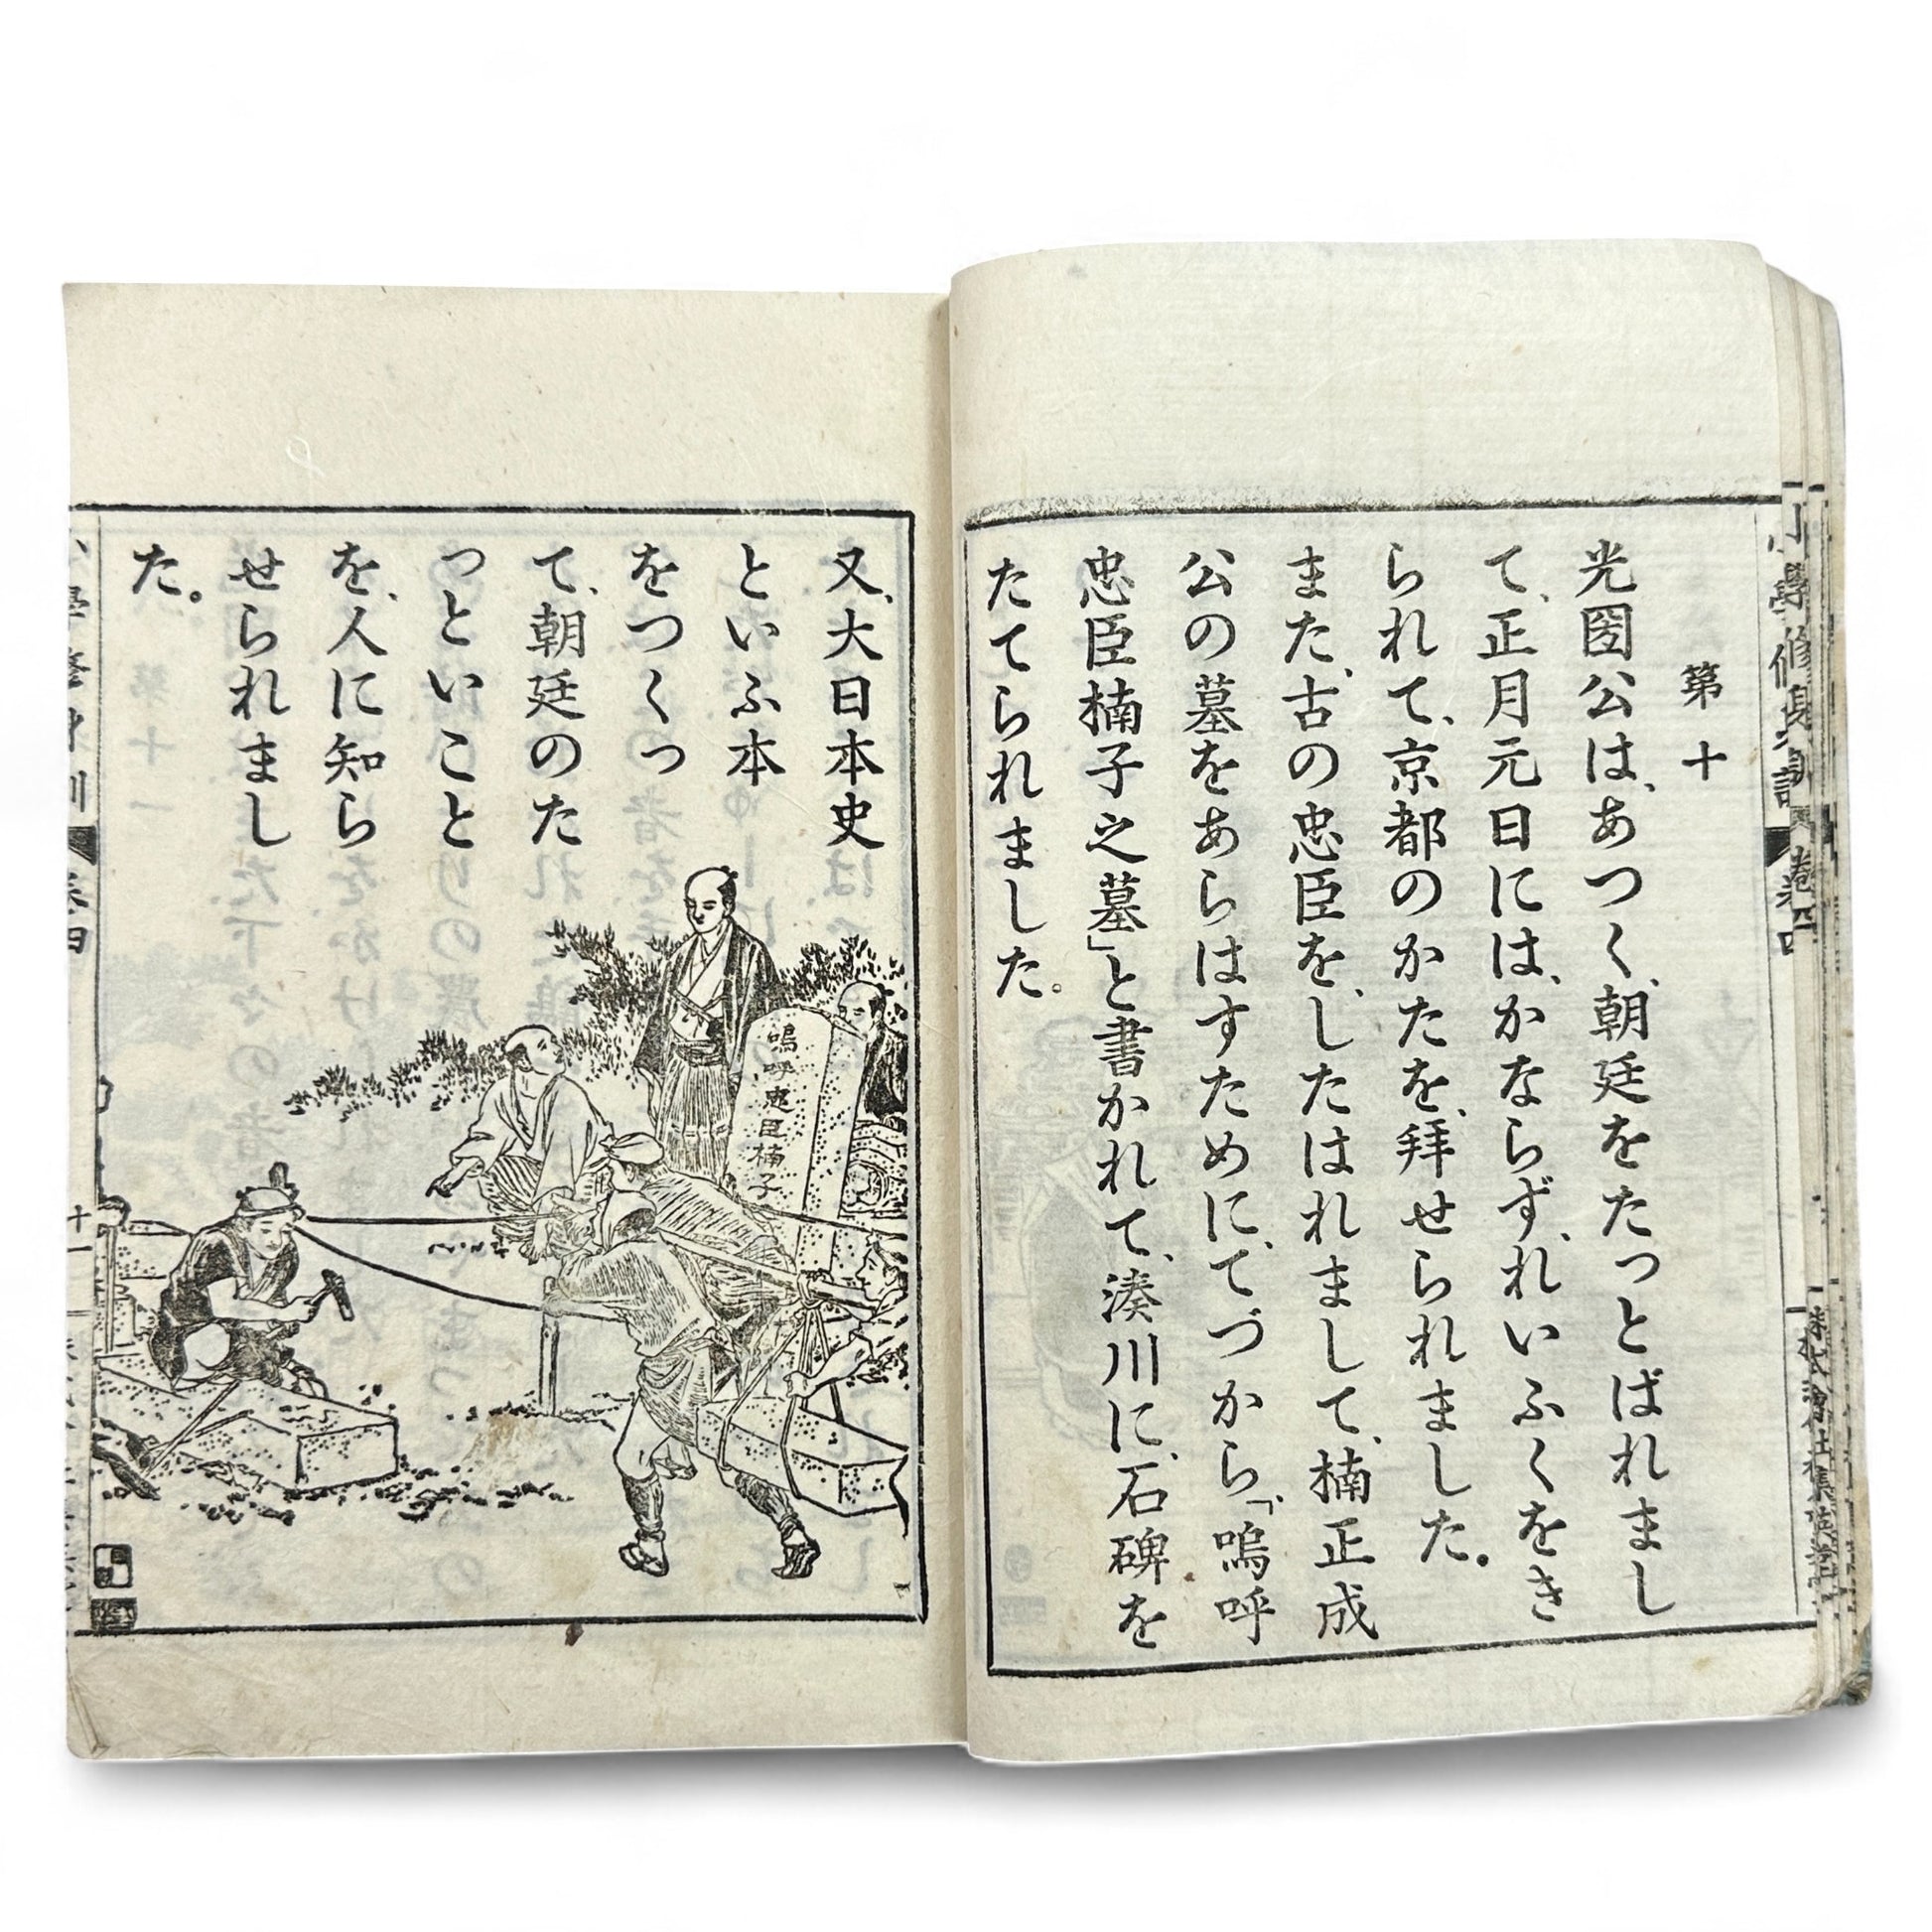 小學修身訓 卷四
第十
光圀公は、あつく、朝廷をたつとばれまし
て、正月元日には、かならず、れいふくをき
られて、京都のかたを、拜せられました。
また、古の忠臣を、したはれまして、楠正成
公の墓をあらはすために、てづから、「嗚呼
忠臣楠子之墓」と書かれて、湊川に、石碑を
たてられました。
又、大日本史
といふ本
をつくつ
て、朝廷のた
つといこと
を、人に知ら
せられまし
た。
嗚呼忠臣楠子
十一